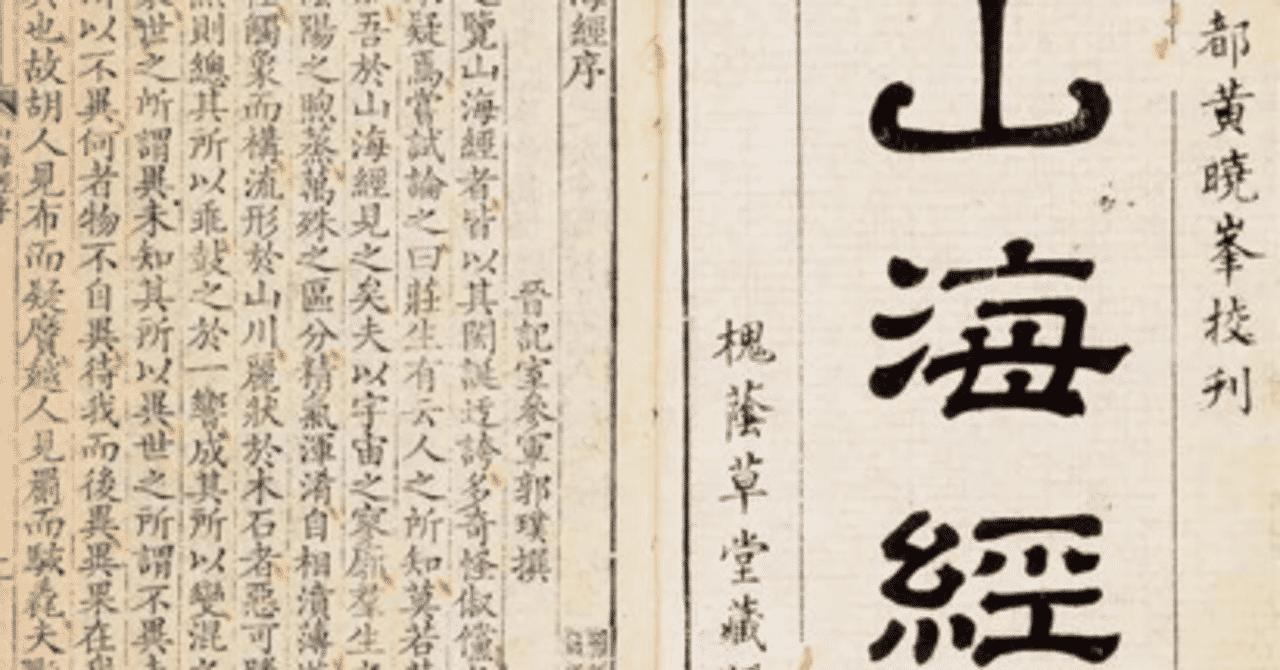 都黃曉峯校刋
山海經
槐蔭草堂藏
海經序
晉記室參軍郭璞撰
覽山海經者皆以其閎誕迂誇多奇怪俶儻
疑焉嘗試論之曰莊生有云人之所知莫若
吾於山海經見之矣夫以宇宙之寥廓羣生
陰陽之煦蒸萬殊之區分精氣渾淆自相濆薄
觸象而構流形於山川麗狀於木石者惡可
則總其所以乖鼓之於一響成其所以變混
世之所謂異未知其所以異世之所謂不異
以不異何者物不自異待我而後異異果在
也故胡人見布而疑黂越人見罽而駭毳夫